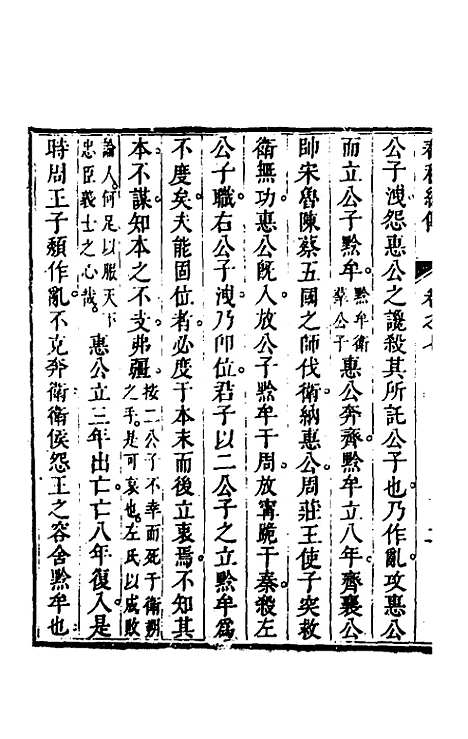 公子洩怨惠公之讒殺其所託公子也乃作亂攻惠公
而立公子黔牟黔牟衛羣公子惠公奔齊黔牟立八年齊襄公
帥宋魯陳蔡五國之師伐衛納惠公周莊王使子突救
衛無功惠公旣入放公子黔牟于周放甯跪于秦殺左
公子職右公子洩乃卽位君子以二公子之立黔牟爲
不度矣夫能固位者必度于本末而後立衷焉不知其
本不謀知本之不支弗彊按二公子不幸而死于衛朔之手是可哀也左氏以成敗
論人何足以服天下忠臣義士之心哉惠公立三年出亡亡八年復入是
時周王子頽作亂不克奔衛衛侯怨王之容舍黔牟也